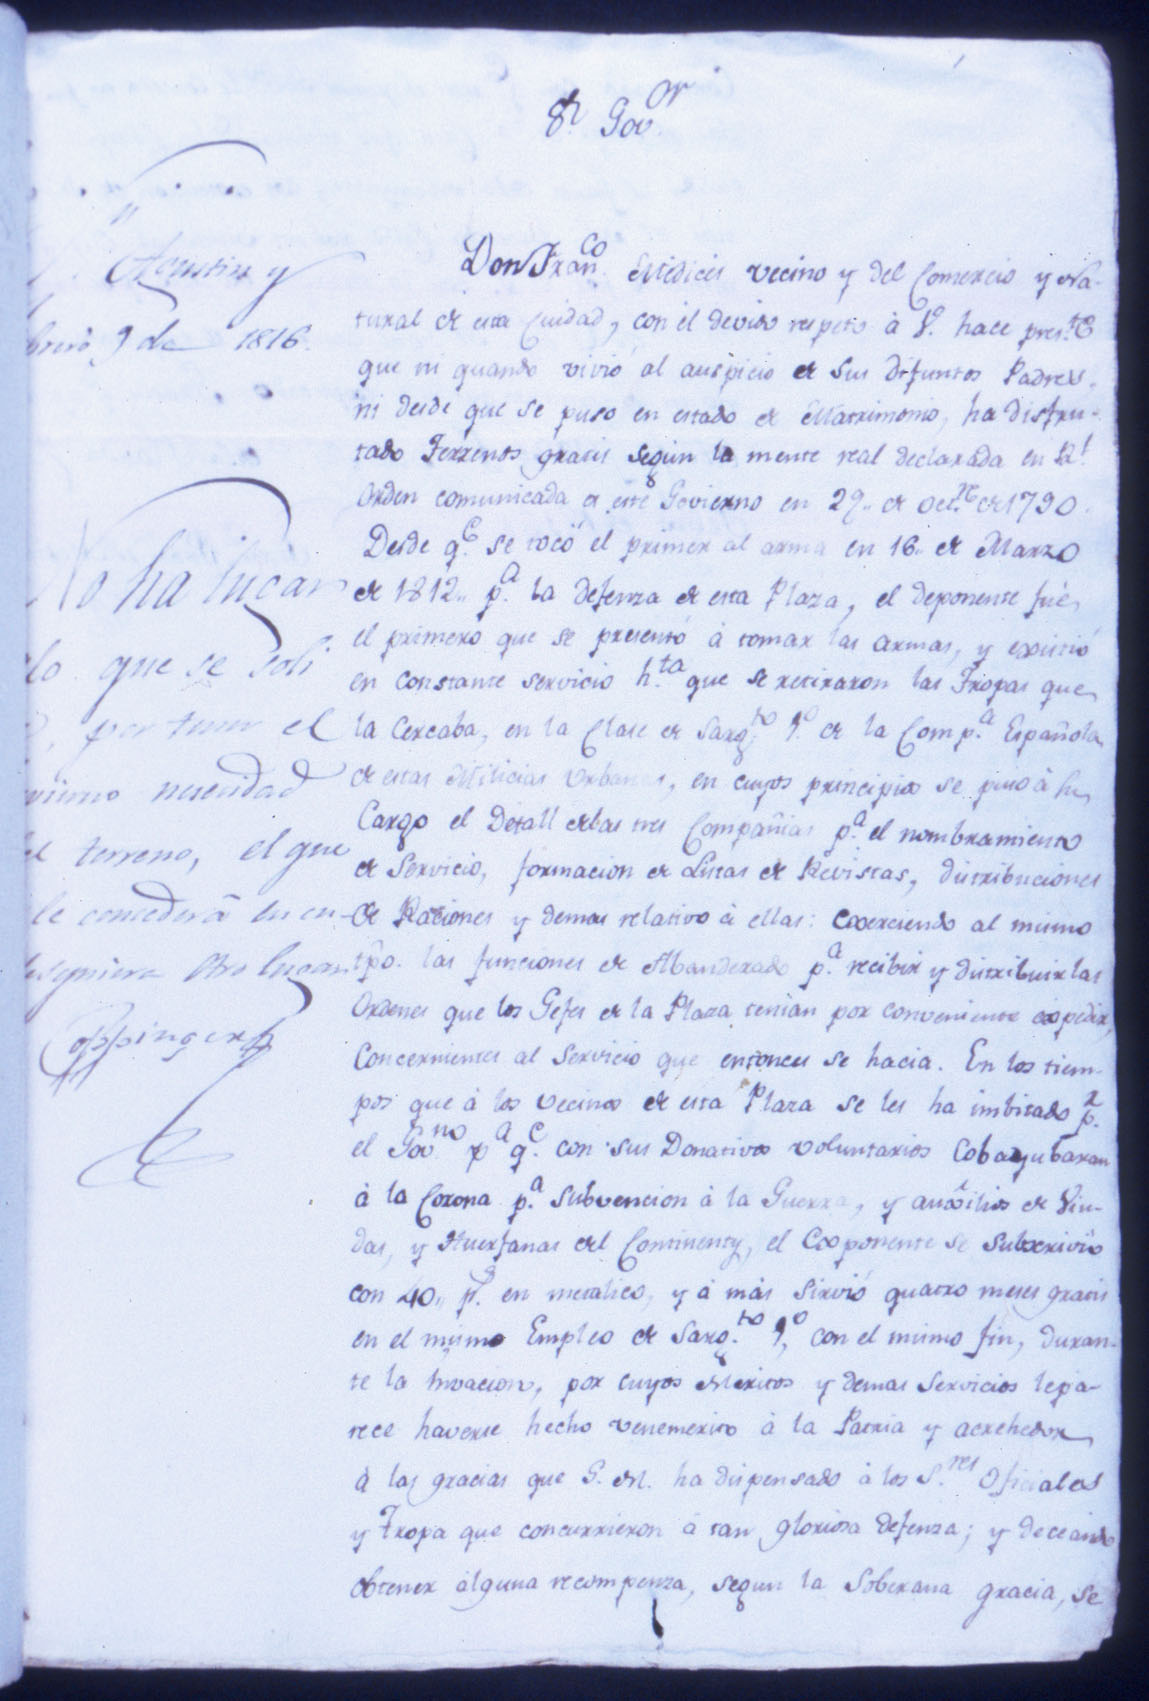 Sr. Govor
Agustin y
brero 9 de 1816.
No ha lugar
lo que se soli
por tener el
mismo necesidad
el terreno, el que
le concederá en cu-
designiere otro lugar
Coppinger
Don Franco. Medicis vecino y del Comercio y Na-
tural de esta Ciudad, con el devido respeto à V. hace preste.
que ni quando vivió al auspicio de sus difuntos Padres,
ni desde que se puso en estado de Matrimonio, ha disfru-
tado Terrenos gratis segun la mente real declarada en Rl.
Orden comunicada a este Govierno en 29.. de Octre. de 1790.
Desde qe. se tocó el primer al arma en 16.. de Marzo
de 1812.. pa. la defenza de esta Plaza, el deponente fué
el primero que se presentó à tomar las armas, y existió
en constante servicio hta. que se retiraron las Tropas que
la Cercaba, en la Clase de Sargto. 1o. de la Compa. Española
de estas Milicias Urbanas, en cuyos principios se puso à su
Cargo el Detall de las tres Compañias pa. el nombramiento
de Servicio, formacion de Listas de Revistas, distribuciones
de Raciones y demas relativo à ellas: exerciendo al mismo
tpo. las funciones de Abanderado pa. recibir y distribuir las
Ordenes que los Gefes de la Plaza tenian por conveniente expedir,
Concernientes al Servicio que entonces se hacia. En los tiem-
pos que à los vecinos de esta Plaza se les ha imbitado pr.
el Govno. pa qe. con sus Donativos voluntarios Cobayubaran
à la Corona pa. Subvencion à la Guerra, y auxilios de Viu-
das, y Huerfanas del Continente, el Exponente se subscrivió
con 40.. ps. en metalico, y à mas sirvió quatro meses gratis
en el mismo Empleo de Sargto. 1o, con el mismo fin, duran-
te la Invacion, por cuyos Meritos y demas Servicios le pa-
rece haverse hecho venemerito à la Patria y acrehedor
à las gracias que S. M. ha dispensado à los Sres. Oficiales
y Tropa que concurrieron à tan gloriosa defenza; y deceando
obtener alguna recompenza, segun la Soberana gracia, se